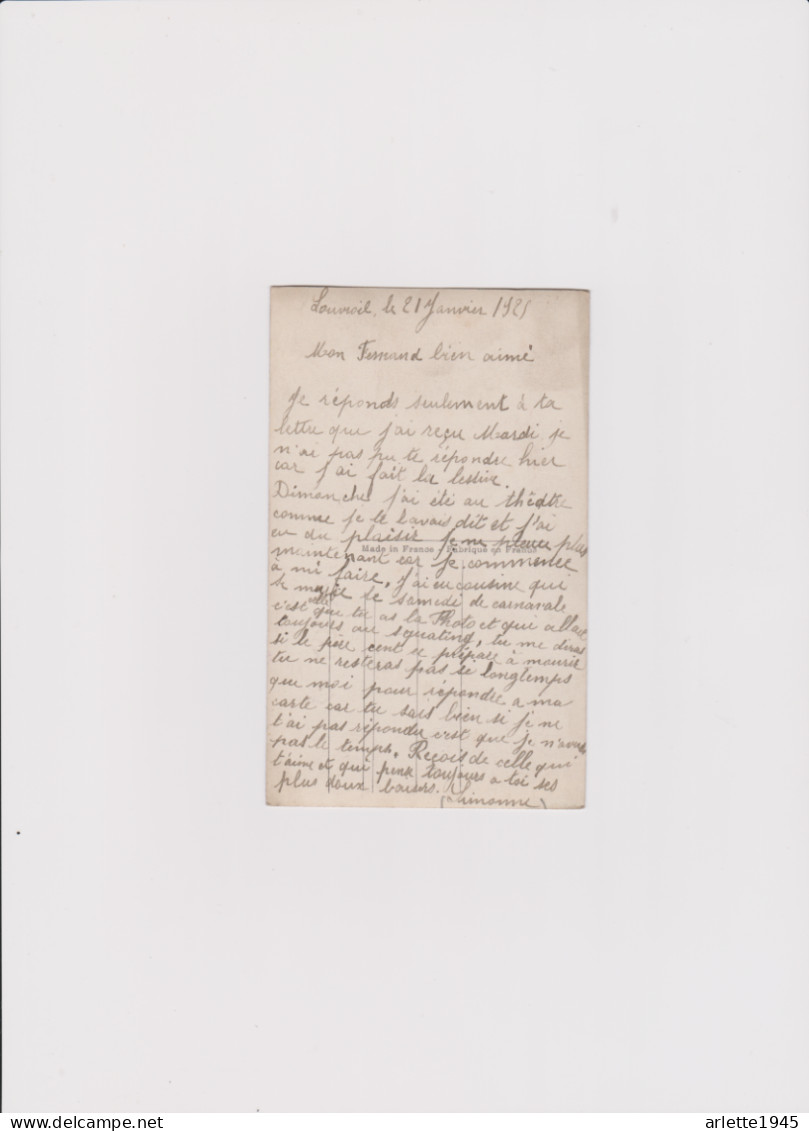 Louvroil, le 21 Janvier 192
Mon Fernand bien aimé
Je réponds seulement à ta
lettre que j'ai reçu Mardi je
n'ai pas pu te répondre hier
car j'ai fait la lestive.
Dimanche j'ai été au théâtre
comme je te l'avais dit et j'ai
eu du plaisir je ne pleure plus
Made in France - Fabriqué en France
maintenant car je commence
à mi faire, j'ai eu cousine qui
se marie le samedi de carnavale
c'est celle que tu as la Photo et qui allait
toujours au squating, tu me diras
si le père cent se prépare à mourir
tu ne resteras pas si longtemps
que moi pour répondre a ma
carte car tu sais bien si je ne
t'ai pas répondu c'est que je n'avais
pas le temps. Reçois de celle qui
t'aime et qui pense toujours a toi ses
plus doux baisers. (Simonne)
arlette1945